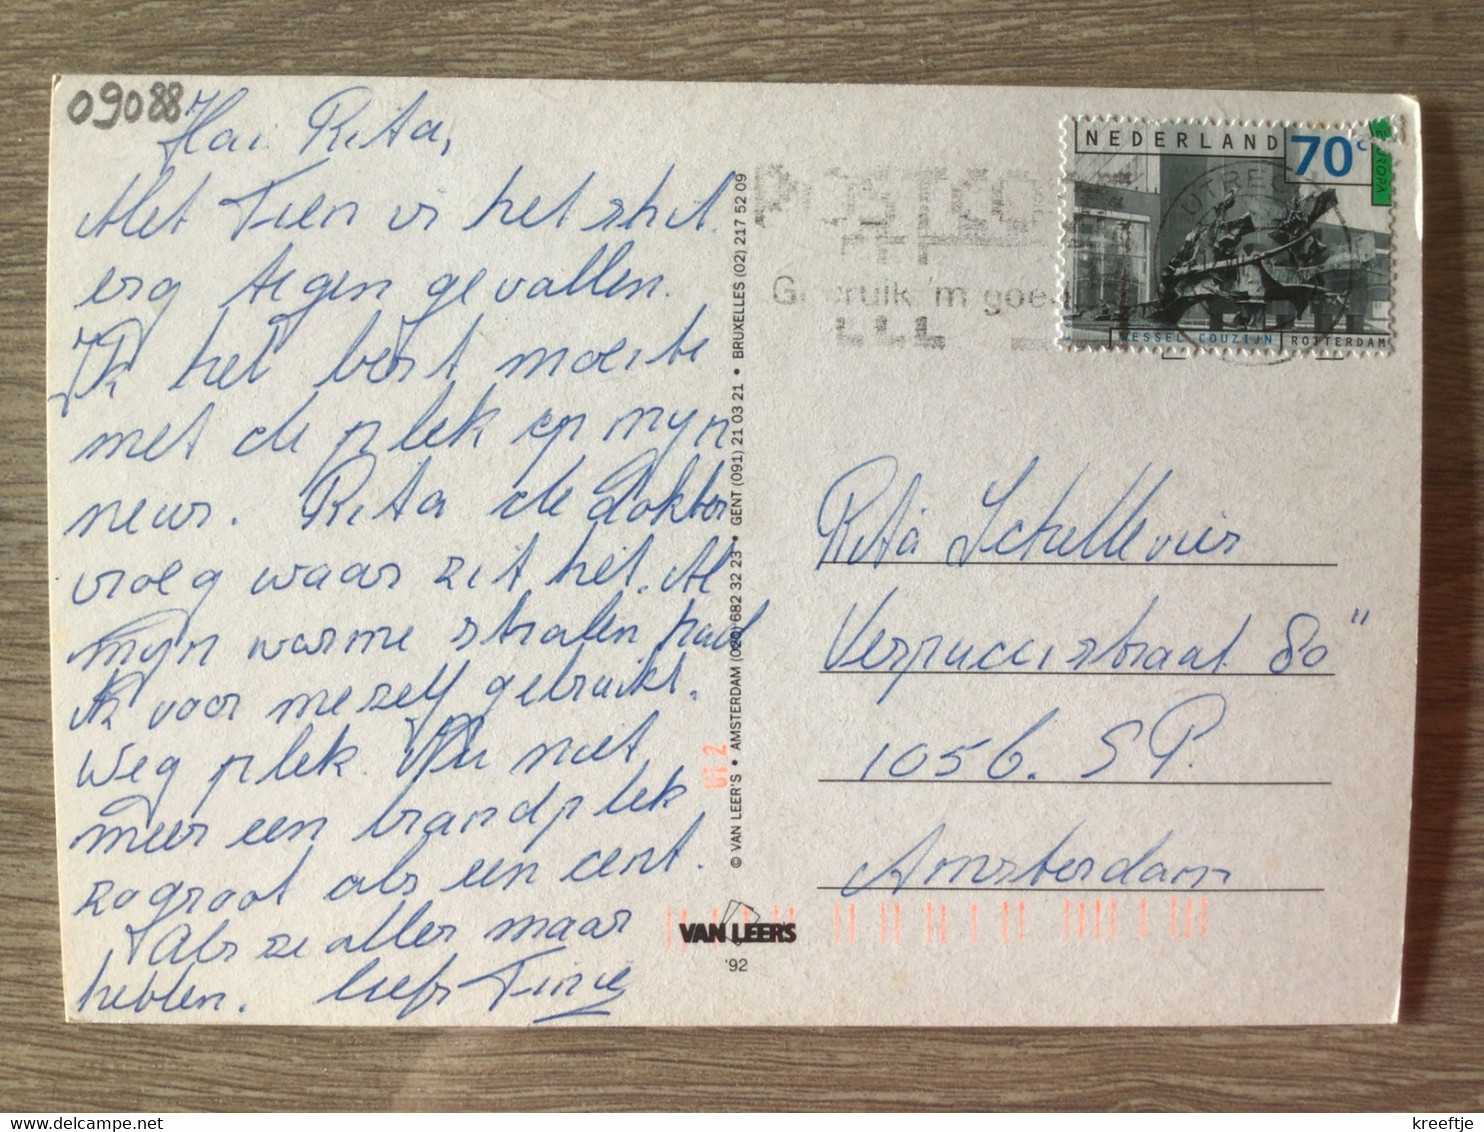 09088
Hai Rita,
Met Tien is het
erg tegen gevallen.
Ik het best moeite
met de plek op mijn
neus. Rita de dokter
vroeg waar zit het. Al
mijn warme stralen had
ik voor mezelf gebruikt.
Weg plek. Nu niet
meer een brandplek
zo groot als een cent.
Als ze alles maar
hebben. liefs Tinie
© VAN LEER'S • AMSTERDAM (020) 682 32 23 • GENT (091) 21 03 21 • BRUXELLES (02) 217 52 09
UT 2
NEDERLAND 70 c EUROPA
WESSEL COUZIJN ROTTERDAM
UTRECHT
Gebruik 'm goed
Rita Schellevis
Verpuccistraat 80"
1056. SP.
Amsterdam
VAN LEER'S
'92
kreeftje